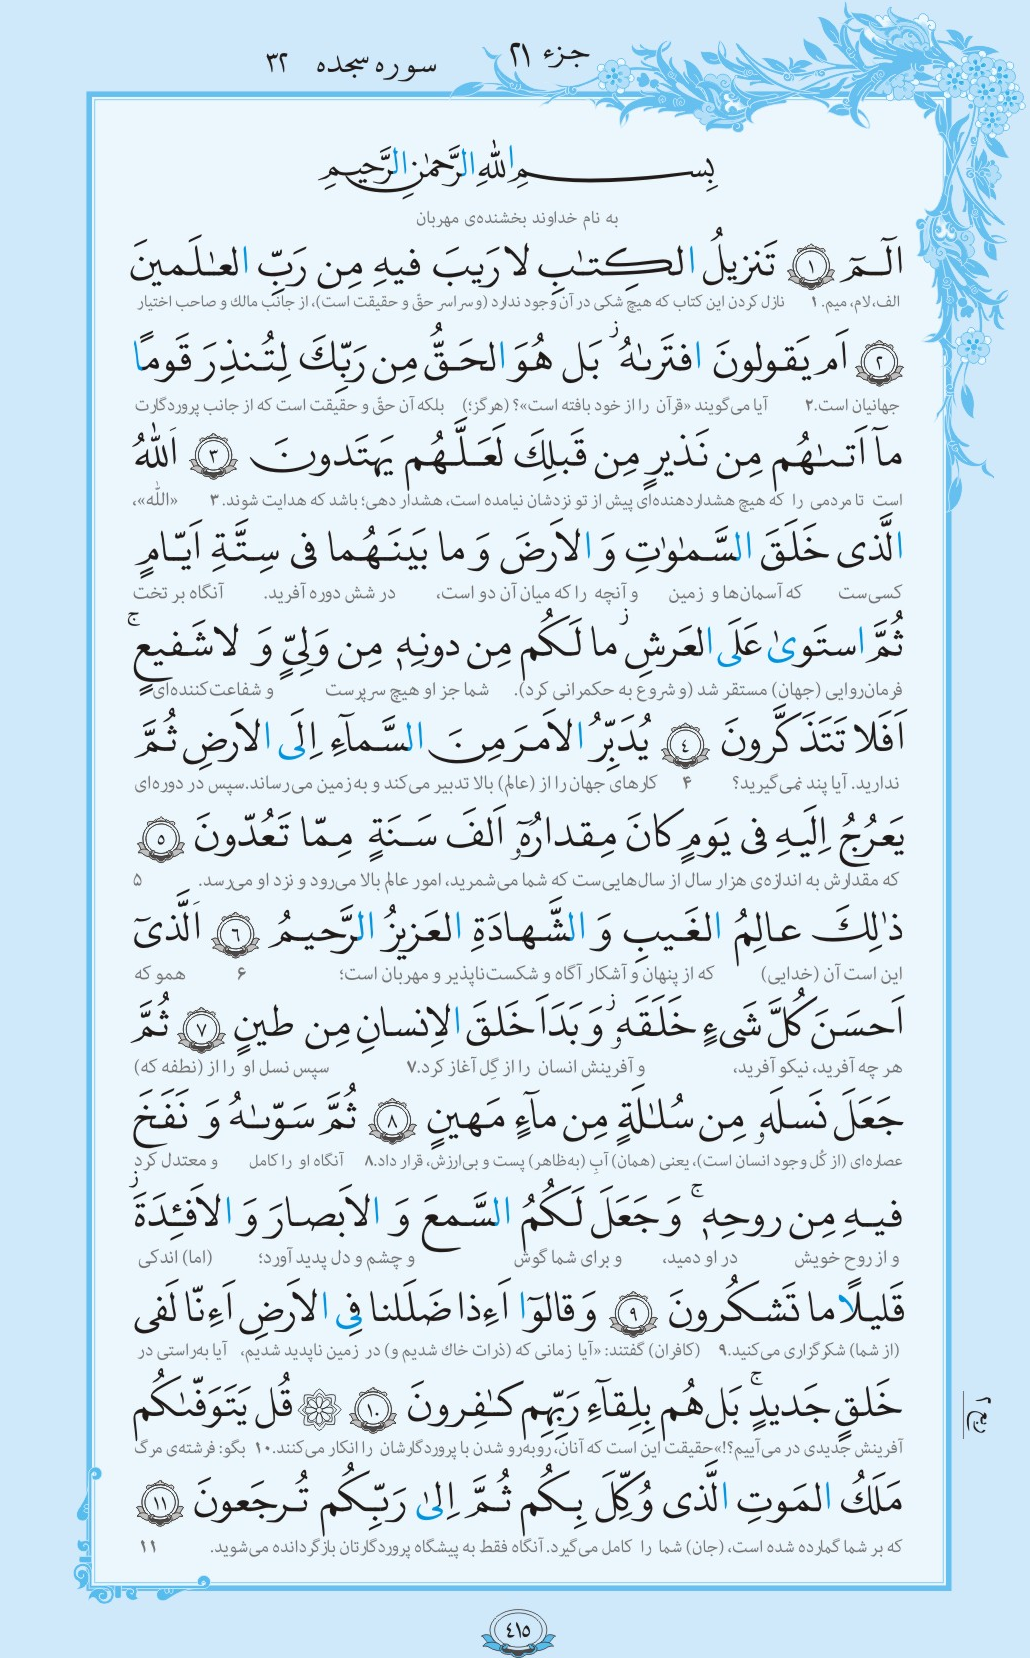 جزء ۲۱
سوره سجده ۳۲
بِسمِ اللهِ الرَّحمٰنِ الرَّحیمِ
به نام خداوند بخشنده‌ی مهربان
الٓـمٓ ﴿١﴾ تَنزیلُ الکِتـٰبِ لا رَیبَ فیهِ مِن رَبِّ العـٰلَمینَ
الف، لام، میم. ۱ نازل کردن این کتاب که هیچ شکی در آن وجود ندارد (و سراسر حقّ و حقیقت است)، از جانب مالک و صاحب اختیار
﴿٢﴾ اَم یَقولونَ افتَرىٰهُ ۚ بَل هُوَ الحَقُّ مِن رَبِّكَ لِتُنذِرَ قَومًا
جهانیان است.۲ آیا می‌گویند «قرآن را از خود بافته است»؟ (هرگز؛) بلکه آن حقّ و حقیقت است که از جانب پروردگارت
مآ اَتـىٰهُم مِن نَذیرٍ مِن قَبلِكَ لَعَلَّهُم یَهتَدونَ ﴿٣﴾ اَللهُ
است تا مردمی را که هیچ هشداردهنده‌ای پیش از تو نزدشان نیامده است، هشدار دهی؛ باشد که هدایت شوند. ۳ «الله»،
الَّذی خَلَقَ السَّمـٰوٰتِ وَ الاَرضَ وَ ما بَینَهُما فی سِتَّةِ اَیّامٍ
کسی‌ست که آسمان‌ها و زمین و آنچه را که میان آن دو است، در شش دوره آفرید. آنگاه بر تخت
ثُمَّ استَوىٰ عَلَى العَرشِ ۖ ما لَکُم مِن دونِهٖ مِن وَلِیٍّ وَ لا شَفیعٍ ۚ
فرمان‌روایی (جهان) مستقر شد (و شروع به حکمرانی کرد). شما جز او هیچ سرپرست و شفاعت‌کننده‌ای
اَفَلا تَتَذَکَّرونَ ﴿٤﴾ یُدَبِّرُ الاَمرَ مِنَ السَّمآءِ اِلَى الاَرضِ ثُمَّ
ندارید. آیا پند نمی‌گیرید؟ ۴ کارهای جهان را از (عالم) بالا تدبیر می‌کند و به زمین می‌رساند. سپس در دوره‌ای
یَعرُجُ اِلَیهِ فی یَومٍ کانَ مِقدارُهٗٓ اَلفَ سَنَةٍ مِمّا تَعُدّونَ ﴿٥﴾
که مقدارش به اندازه‌ی هزار سال از سال‌هایی‌ست که شما می‌شمرید، امور عالم بالا می‌رود و نزد او می‌رسد. ۵
ذٰلِكَ عالِمُ الغَیبِ وَ الشَّهادَةِ العَزیزُ الرَّحیمُ ﴿٦﴾ اَلَّذیٓ
این است آن (خدایی) که از پنهان و آشکار آگاه و شکست‌ناپذیر و مهربان است؛ ۶ همو که
اَحسَنَ کُلَّ شَیءٍ خَلَقَهٗ ۖ وَ بَدَاَ خَلقَ الاِنسانِ مِن طینٍ ﴿٧﴾ ثُمَّ
هر چه آفرید، نیکو آفرید، و آفرینش انسان را از گِل آغاز کرد.۷ سپس نسل او را از (نطفه که)
جَعَلَ نَسلَهٗ مِن سُلـٰلَةٍ مِن مآءٍ مَهینٍ ﴿٨﴾ ثُمَّ سَوّىٰهُ وَ نَفَخَ
عصاره‌ای (از کُل وجود انسان است)، یعنی (همان) آبِ (به‌ظاهر) پست و بی‌ارزش، قرار داد.۸ آنگاه او را کامل و معتدل کرد
فیهِ مِن روحِهٖ ۚ وَ جَعَلَ لَکُمُ السَّمعَ وَ الاَبصارَ وَ الاَفـِٔدَةَ ۚ
و از روح خویش در او دمید، و برای شما گوش و چشم و دل پدید آورد؛ (اما) اندکی
قَلیلًا ما تَشکُرونَ ﴿٩﴾ وَ قالوٓا اَءِذا ضَلَلنا فِی الاَرضِ اَءِنّا لَفی
(از شما) شکرگزاری می‌کنید.۹ (کافران) گفتند: «آیا زمانی که (ذرات خاك شدیم و) در زمین ناپدید شدیم، آیا به‌راستی در
خَلقٍ جَدیدٍ ۚ بَل هُم بِلِقآءِ رَبِّهِم کـٰفِرونَ ﴿١٠﴾ قُل یَتَوَفّىٰکُم
آفرینش جدیدی در می‌آییم؟!» حقیقت این است که آنان، روبه‌رو شدن با پروردگارشان را انکار می‌کنند.۱۰ بگو: فرشته‌ی مرگ
مَلَكُ المَوتِ الَّذی وُکِّلَ بِکُم ثُمَّ اِلىٰ رَبِّکُم تُرجَعونَ ﴿١١﴾
که بر شما گمارده شده است، (جان) شما را کامل می‌گیرد. آنگاه فقط به پیشگاه پروردگارتان بازگردانده می‌شوید. ۱۱
ربع ۲
٤١٥